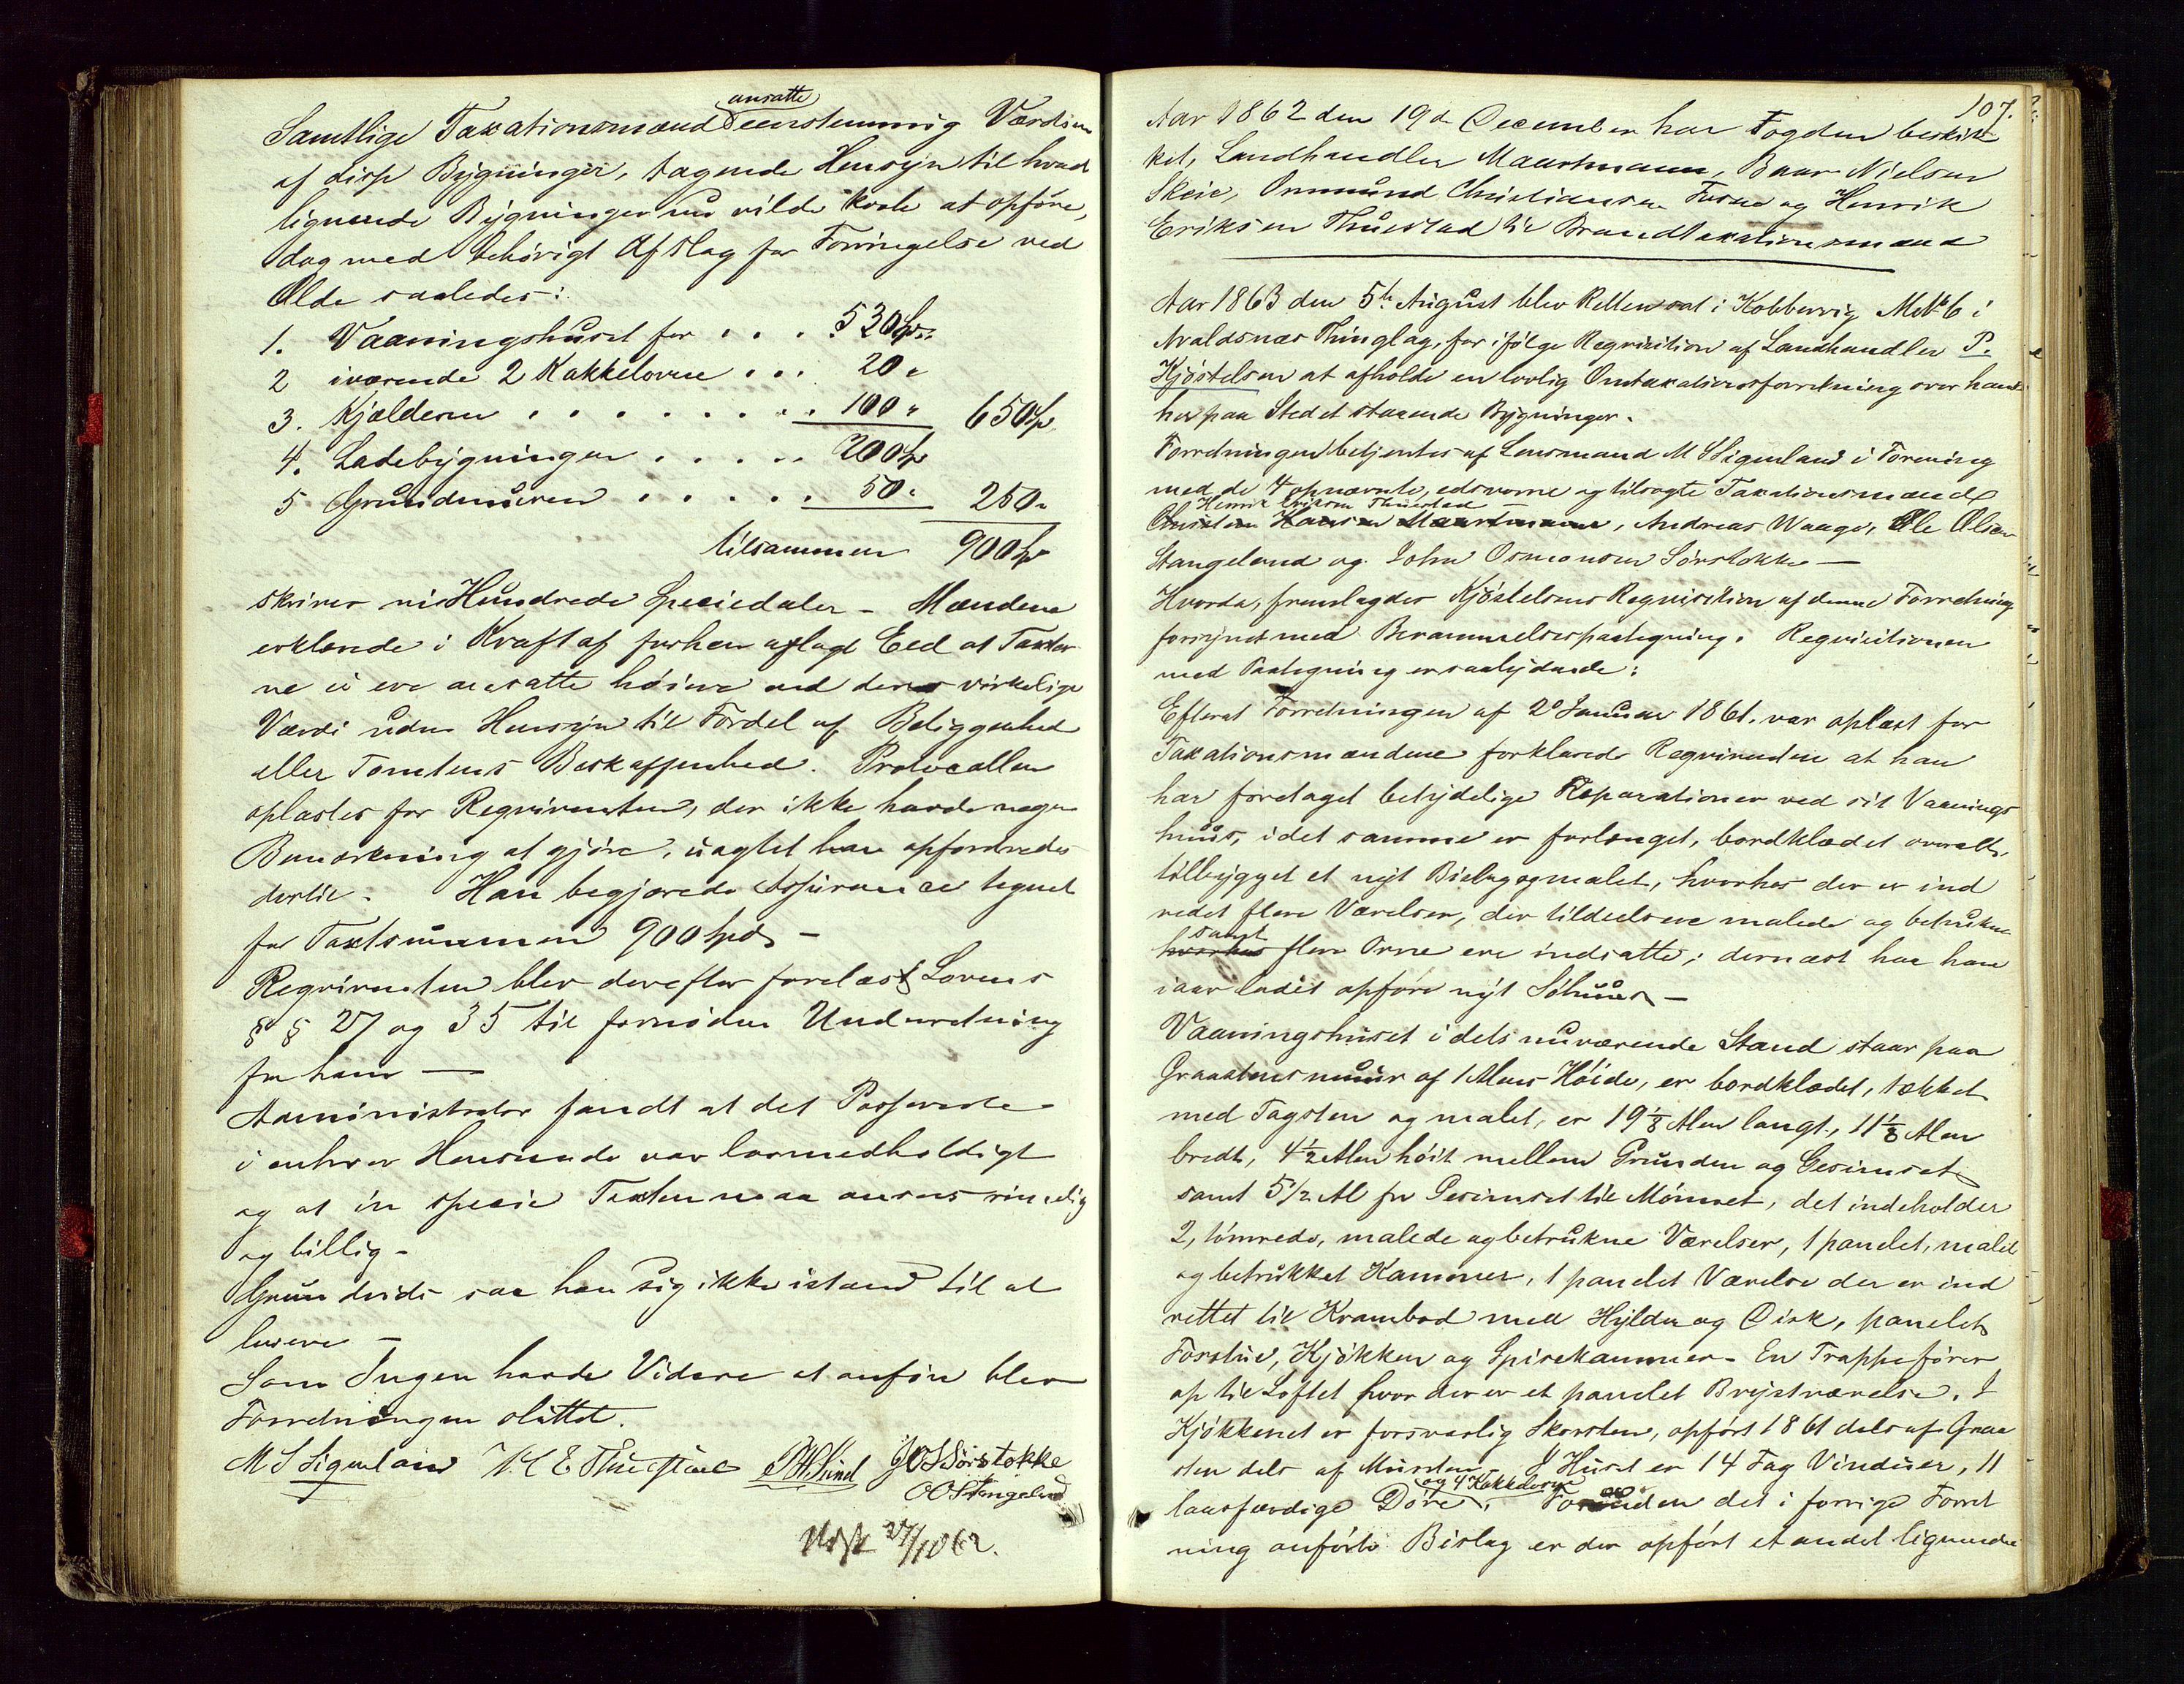 Samtlige Taxationsmænd ansatte eenstemmig Værdien
af disse Bygninger, tagende Hensyn til hvad
lignende Bygninger nu vilde koste at opføre,
dog med behørigt Afslag for Forringelse ved
Ælde saaledes:
1. Vaaningshuset for . . . 530 Spd.
2 iværende 2 Kakkelovne . . . 20 "
3. Kjælderen . . . . . . . . 100 " 650 Sp
4. Ladebygningen . . . . . 200 Sp
5 Grundmuren . . . . . 50 " 250 "
tilsammen 900 Sp
skriver ni Hundrede Speciedaler – Mændene
erklærede i Kraft af forhen aflagt Eed at Taxter
ne ei ere ansatte høiere end deres virkelige
Værdi uden Hensyn til Fordel af Beliggenhed
eller Tomtens Beskaffenhed. Protocollen
oplæstes for Reqvirenten, der ikke havde nogen
Bemærkning at gjøre, uagtet han opfordredes
dertil. Han begjærede Assurance tegnet
for Taxtsummen 900 Spd –
Reqvirenten blev derefter forelæst Lovens
§ § 27 og 35 til fornøden Underretning
for ham —
Administrator fandt at det Passerede
i enhver Henseende var lovmedholdigt
og at in specie Taxten maa ansees rimelig
og billig –
Grundrids saa han sig ikke istand til at
levere –
Som Ingen havde Videre at anføre blev
Forretningen sluttet.
M S Sigenland H E Thuestad Lund J O Sørstokke
O O Stangeland
27/10 62.
107.
Aar 1862 den 19d December har Fogden beskik
ket, Landhandler Maartmann, Baar Nielsen
Skeie, Ommund Christiansen Fosne og Henrik
Eriksen Thuestad til Brandtaxationsmænd
Aar 1863 den 5te August blev Retten sat i Kobbervig Mat No 6 i
Avaldsnæs Thinglag, for ifølge Reqvisition af Landhandler P.
Kjøstelsen at afholde en lovlig Omtaxationsforretning over hans
her paa Stedet staaende Bygninger.
Forretningen betjentes af Lensmand M S Sigenland i Forening
med de 4 opnævnte, edsvorne og tilsagte Taxationsmænd
Henrik Eriksen Thuestad
Christen Hansen Maartmann, Andreas Waage, Ole Olsen
Stangeland og John Osmonsen Sørstokke —
Hvorda, fremlagdes Kjøstelsens Reqvisition af denne Forretning
forsynet med Berammelsespaategning. Reqvisitionen
med Paategning er saalydende:
Efterat Forretningen af 2d Januar 1861. var oplæst for
Taxationsmændene forklarede Reqvirenten at han
har foretaget betydelige Reparationer ved sit Vaanings
huus, idet samme er forlænget, bordklædet overalt,
tilbygget et nyt Bislag og malet, hvorhos der er ind
redet flere Værelser, der tildeels ere malede og betrukne
samt
hvorhos flere Ovne ere indsatte; dernæst har han
iaar ladet opføre nyt Søhuus —
Vaaningshuset i dets nuværende Stand staar paa
Graasteensmuur af 1 Alens Høide, er bordklædet, tækket
med Tagsten og malet, er 19 1/8 Alen langt, 11 1/8 Alen
bredt, 4 1/2 Alen høit mellem Grunden og Gesimset
samt 5 1/2 Al fra Gesimset til Mønnet, det indeholder
2, tømrede, malede og betrukne Værelser, 1 panelet, malet
og betrukket Kammer, 1 panelet Værelse der er ind
rettet til Krambod med Hylder og Disk, panelet
Forstue, Kjøkken og Spisekammer – En Trappe fører
op til Loftet hvor der er et panelet Brystværelse. I
Kjøkkenet er forsvarlig Skorsten, opført 1861 dels af Graa
sten dels af Mursten. I Huset er 14 Fag Vinduer, 11
laasfærdige Døre og 4 Kakkelovne. Foruden det i forrige Forret
ning anførte Bislag er der opført et andet lignende